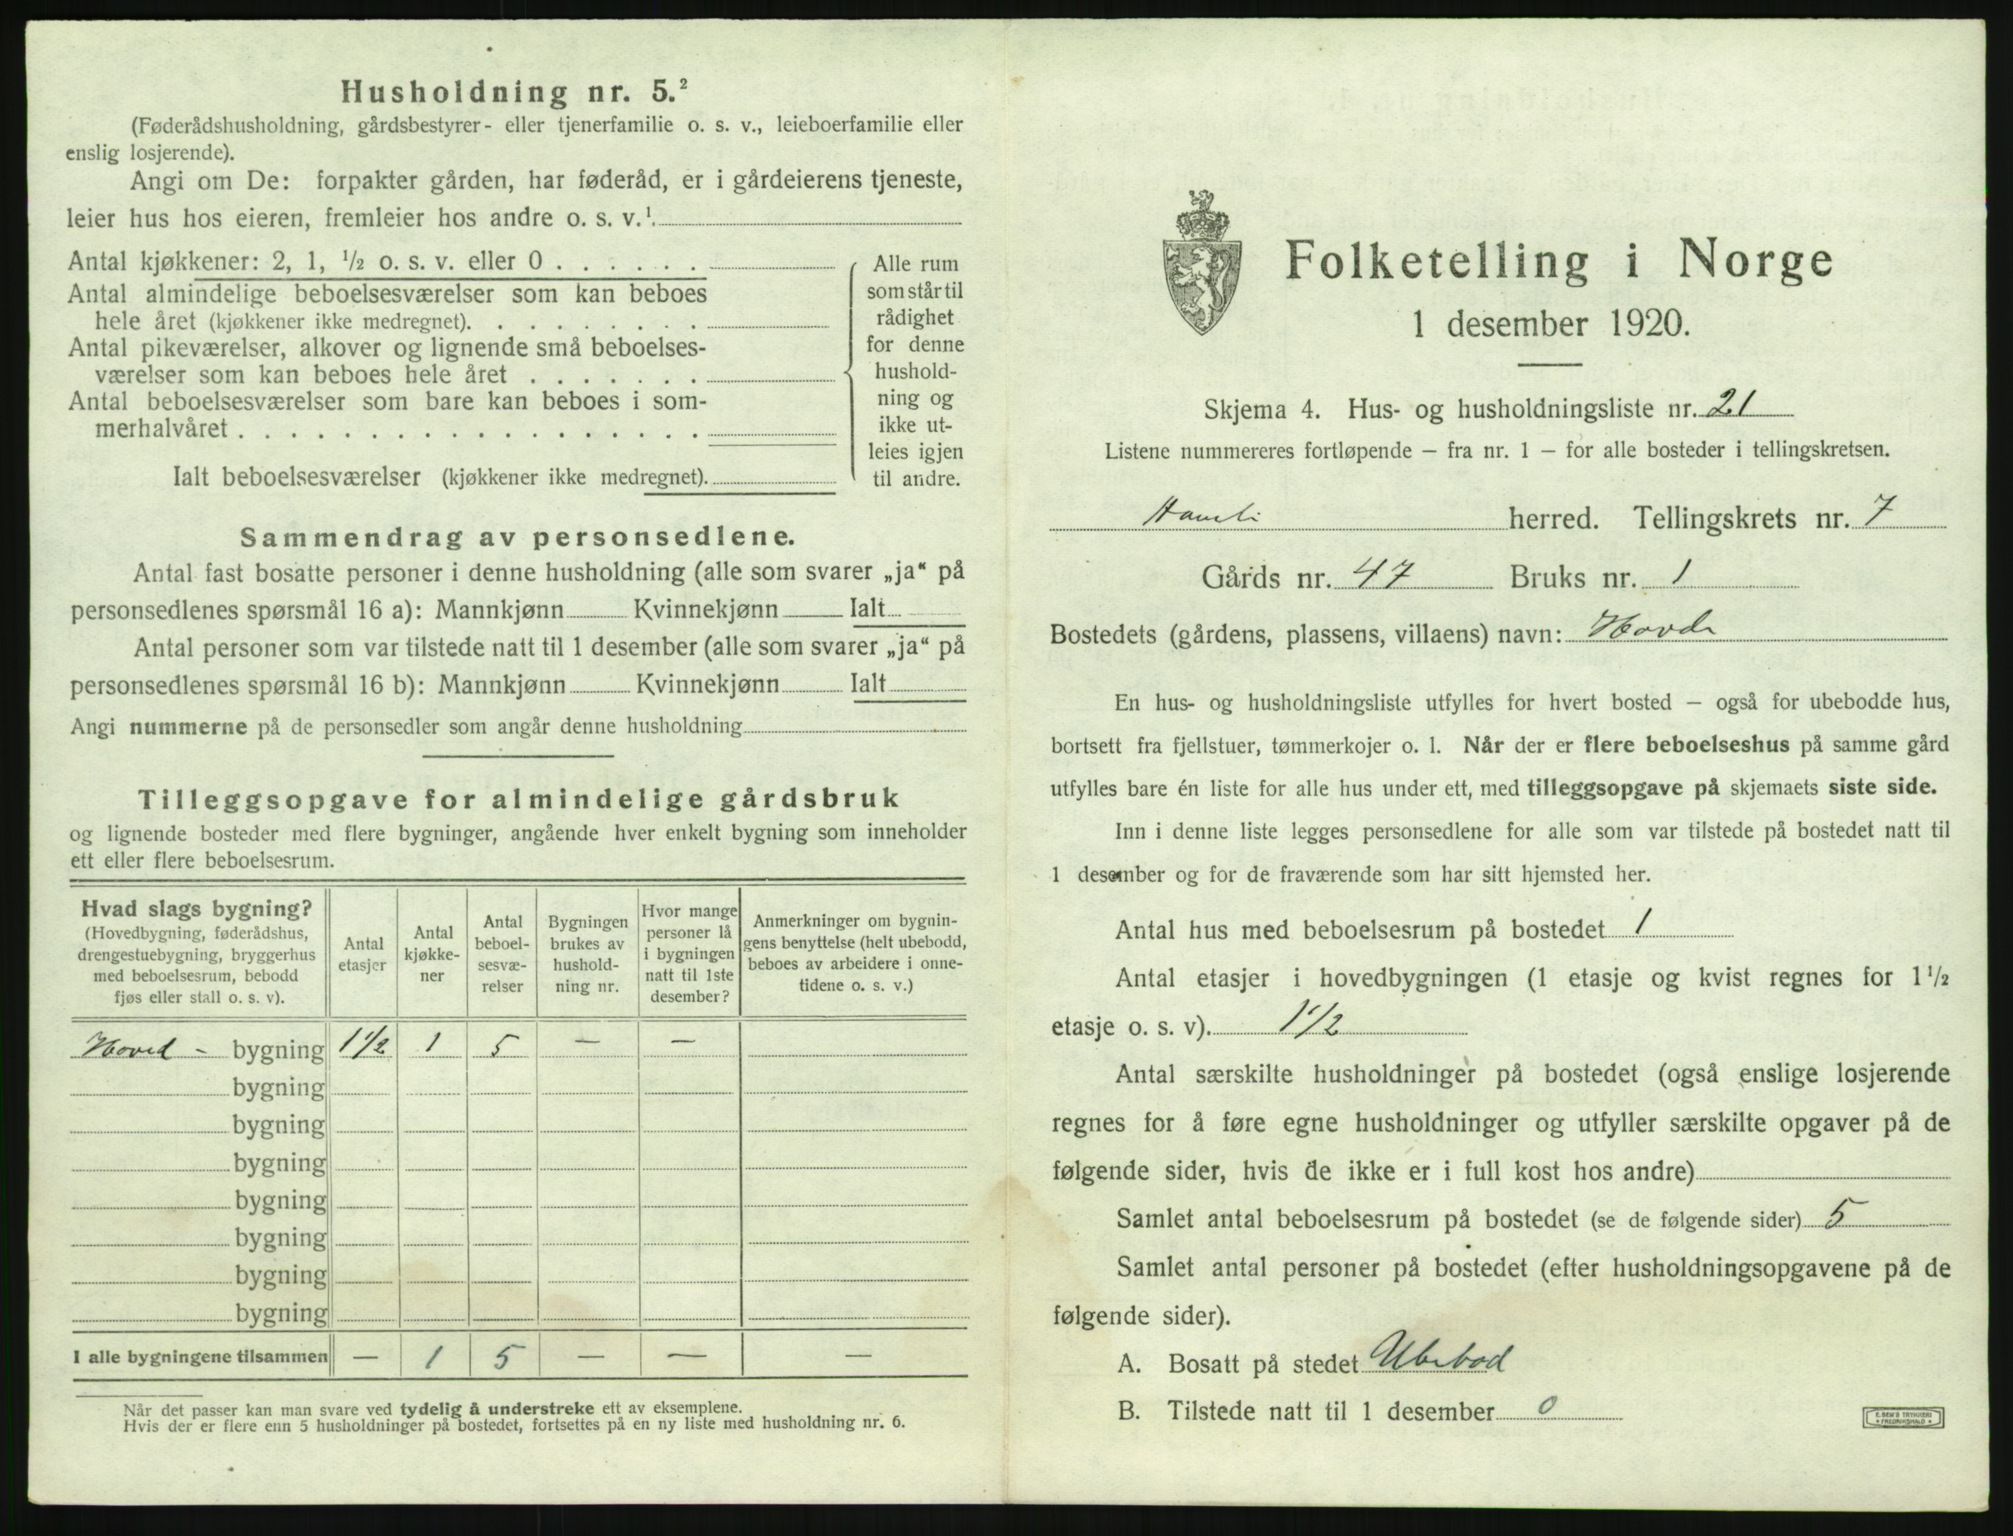 Husholdning nr. 5.²
(Føderådshusholdning, gårdsbestyrer- eller tjenerfamilie o. s. v., leieboerfamilie eller
enslig losjerende).
Angi om De: forpakter gården, har føderåd, er i gårdeierens tjeneste,
leier hus hos eieren, fremleier hos andre o. s. v.¹
Antal kjøkkener: 2, 1, ½ o. s. v. eller 0 . . . . . .
Antal almindelige beboelsesværelser som kan beboes
hele året (kjøkkener ikke medregnet). . . . . . . . .
Antal pikeværelser, alkover og lignende små beboelses-
værelser som kan beboes hele året . . . . . . .
Antal beboelsesværelser som bare kan beboes i som-
merhalvåret . . . . . . . . . . . . . . . . . .
Ialt beboelsesværelser (kjøkkener ikke medregnet).
Alle rum
som står til
rådighet
for denne
hushold-
ning og
ikke ut-
leies igjen
til andre.
Sammendrag av personsedlene.
Antal fast bosatte personer i denne husholdning (alle som svarer „ja“ på
personsedlenes spørsmål 16 a): Mannkjønn Kvinnekjønn Ialt
Antal personer som var tilstede natt til 1 desember (alle som svarer „ja“ på
personsedlenes spørsmål 16 b): Mannkjønn Kvinnekjønn Ialt
Angi nummerne på de personsedler som angår denne husholdning
Tilleggsopgave for almindelige gårdsbruk
og lignende bosteder med flere bygninger, angående hver enkelt bygning som inneholder
ett eller flere beboelsesrum.
Hvad slags bygning?
(Hovedbygning, føderådshus,
drengestuebygning, bryggerhus
med beboelsesrum, bebodd
fjøs eller stall o. s. v).
Antal
etasjer
Antal
kjøkke-
ner
Antal
beboel-
sesvæ-
relser
Bygningen
brukes av
hushold-
ning nr.
Hvor mange
personer lå
i bygningen
natt til 1ste
desember?
Anmerkninger om bygnin-
gens benyttelse (helt ubebodd,
beboes av arbeidere i onne-
tidene o. s. v.)
Hoved - bygning 1½ 1 5 — —
bygning
bygning
bygning
bygning
bygning
bygning
bygning
I alle bygningene tilsammen — 1 5 — — —
Når det passer kan man svare ved tydelig å understreke ett av eksemplene.
Hvis der er flere enn 5 husholdninger på bostedet, fortsettes på en ny liste med husholdning nr. 6.
Folketelling i Norge
1 desember 1920.
Skjema 4. Hus- og husholdningsliste nr. 21
Listene nummereres fortløpende — fra nr. 1 — for alle bosteder i tellingskretsen.
herred. Tellingskrets nr. 7
Gårds nr. 47 Bruks nr. 1
Bostedets (gårdens, plassens, villaens) navn: Hovde
En hus- og husholdningsliste utfylles for hvert bosted — også for ubebodde hus,
bortsett fra fjellstuer, tømmerkojer o. l. Når der er flere beboelseshus på samme gård
utfylles bare én liste for alle hus under ett, med tilleggsopgave på skjemaets siste side.
Inn i denne liste legges personsedlene for alle som var tilstede på bostedet natt til
1 desember og for de fraværende som har sitt hjemsted her.
Antal hus med beboelsesrum på bostedet 1
Antal etasjer i hovedbygningen (1 etasje og kvist regnes for 1½
etasje o. s. v). 1½
Antal særskilte husholdninger på bostedet (også enslige losjerende
regnes for å føre egne husholdninger og utfyller særskilte opgaver på de
følgende sider, hvis de ikke er i full kost hos andre)
Samlet antal beboelsesrum på bostedet (se de følgende sider) 5
Samlet antal personer på bostedet (efter husholdningsopgavene på de
følgende sider).
A. Bosatt på stedet Ubebod
B. Tilstede natt til 1 desember 0
E. SEM'S TRYKKERI
FREDRIKSHALD